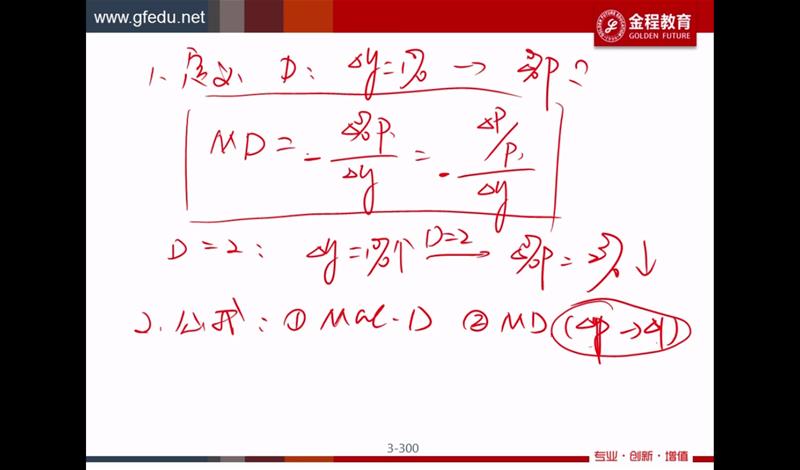 www.gfedu.net 金程教育
GOLDEN FUTURE
1. 定义 D: Δy=1% → Δ%P?
MD = - Δ%P / Δy = - ΔP/P / Δy
D=2: Δy=1%↑ D=2 → Δ%P = 2%↓
2. 公式: ① Mac.D ② MD (Δy → Δy)
3-300
专业·创新·增值